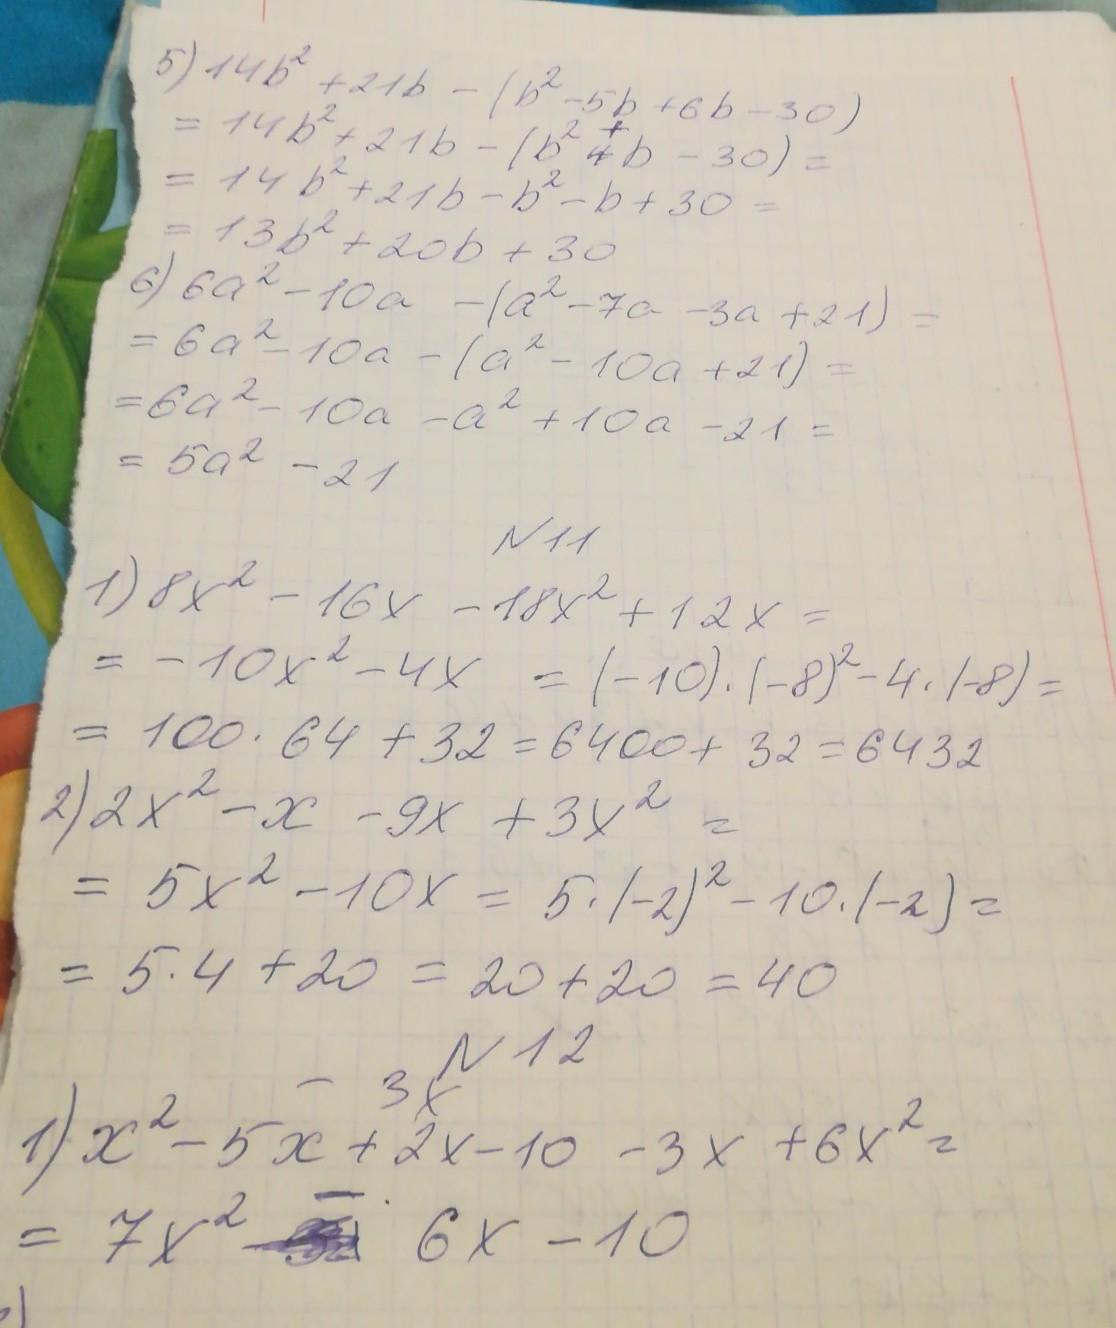 5) 14b² + 21b - (b² - 5b + 6b - 30)
= 14b² + 21b - (b² + b - 30) =
= 14b² + 21b - b² - b + 30 =
= 13b² + 20b + 30
6) 6a² - 10a - (a² - 7a - 3a + 21) =
= 6a² - 10a - (a² - 10a + 21) =
= 6a² - 10a - a² + 10a - 21 =
= 5a² - 21
N11
1) 8x² - 16x - 18x² + 12x =
= -10x² - 4x = (-10)·(-8)² - 4·(-8) =
= 100·64 + 32 = 6400 + 32 = 6432
2) 2x² - x - 9x + 3x² =
= 5x² - 10x = 5·(-2)² - 10·(-2) =
= 5·4 + 20 = 20 + 20 = 40
N12
- 3x
1) x² - 5x + 2x - 10 - 3x + 6x² =
= 7x² - 6x - 10